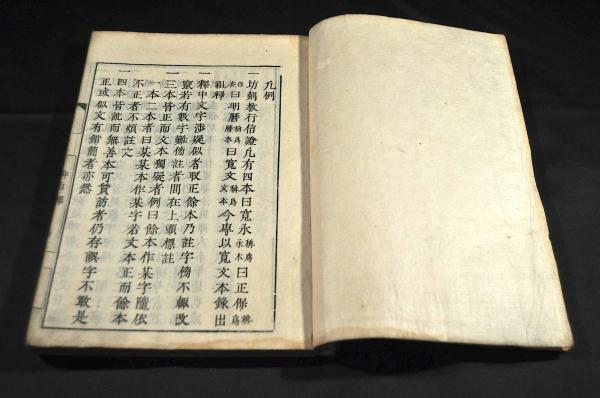 凡例
一 坊刻敎行信證凡有四本曰寬永稱爲永本曰正保稱爲保本曰明曆稱爲曆本曰寬文稱爲文本今專以寬文本錄出
祖釋
一 釋中文字涉疑似者取正餘本乃註字傍不輒改
竄若有數字難傍註者間在上頭標註
一 三本皆正而文本獨疑者例曰餘本作某字隨依
一本二本者曰某某本作某字若文本正而餘本
不正者不煩註之
一 四本皆訛而無善本可質訪者仍存誤字不敢是
正或似文有錯簡者亦然